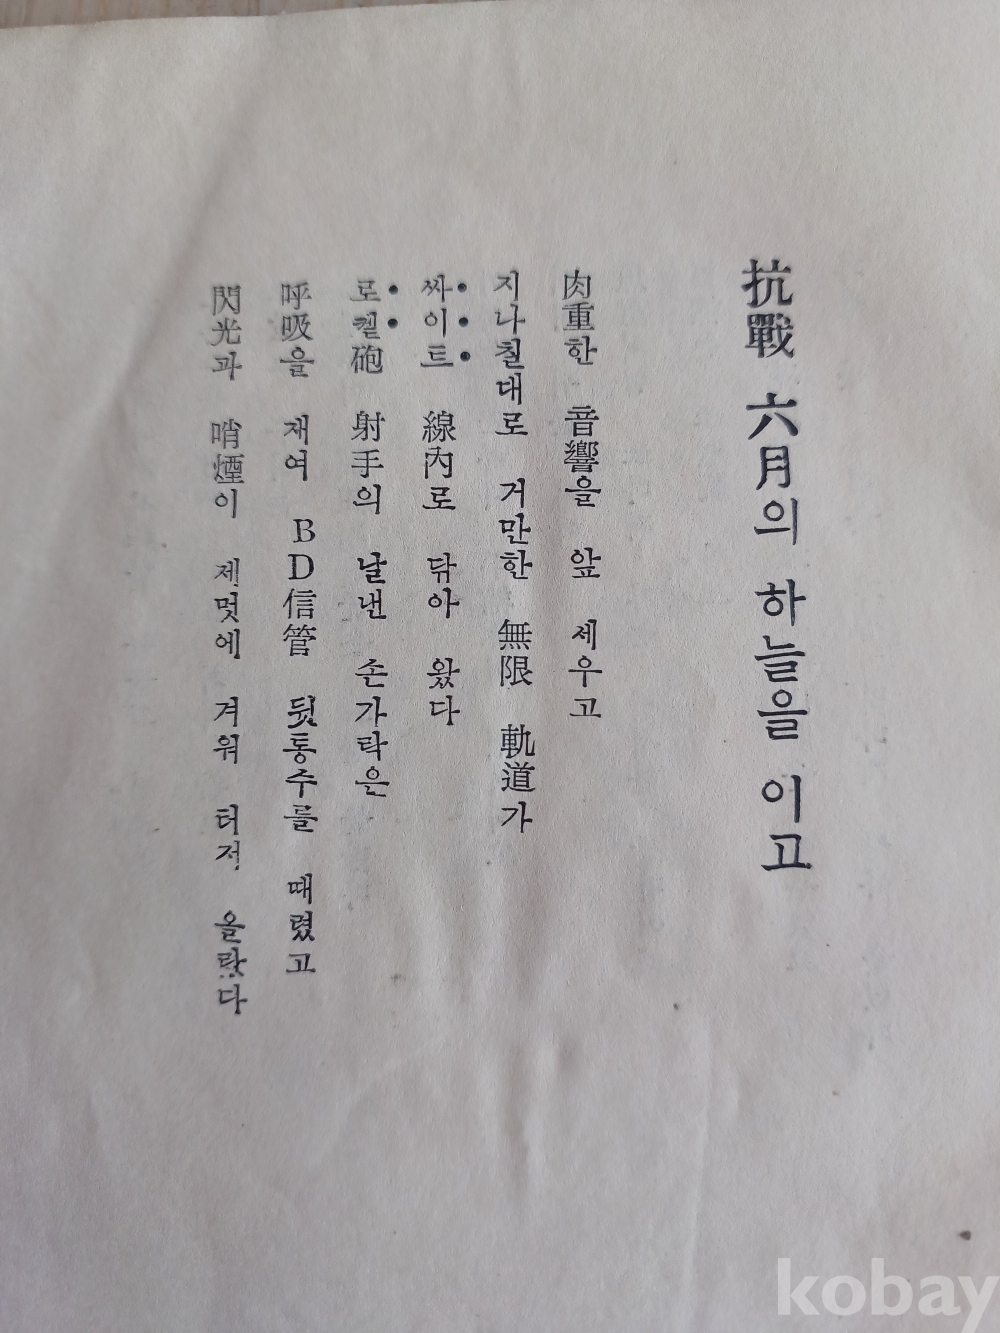 抗戰 六月의 하늘을 이고
肉重한 音響을 앞 세우고
지나칠대로 거만한 無限 軌道가
싸이트 線內로 닦아 왔다
로켙砲 射手의 날낸 손가락은
呼吸을 재여 BD信管 뒷통수를 때렸고
閃光과 哨煙이 제멋에 겨워 터저 올랐다
kobay